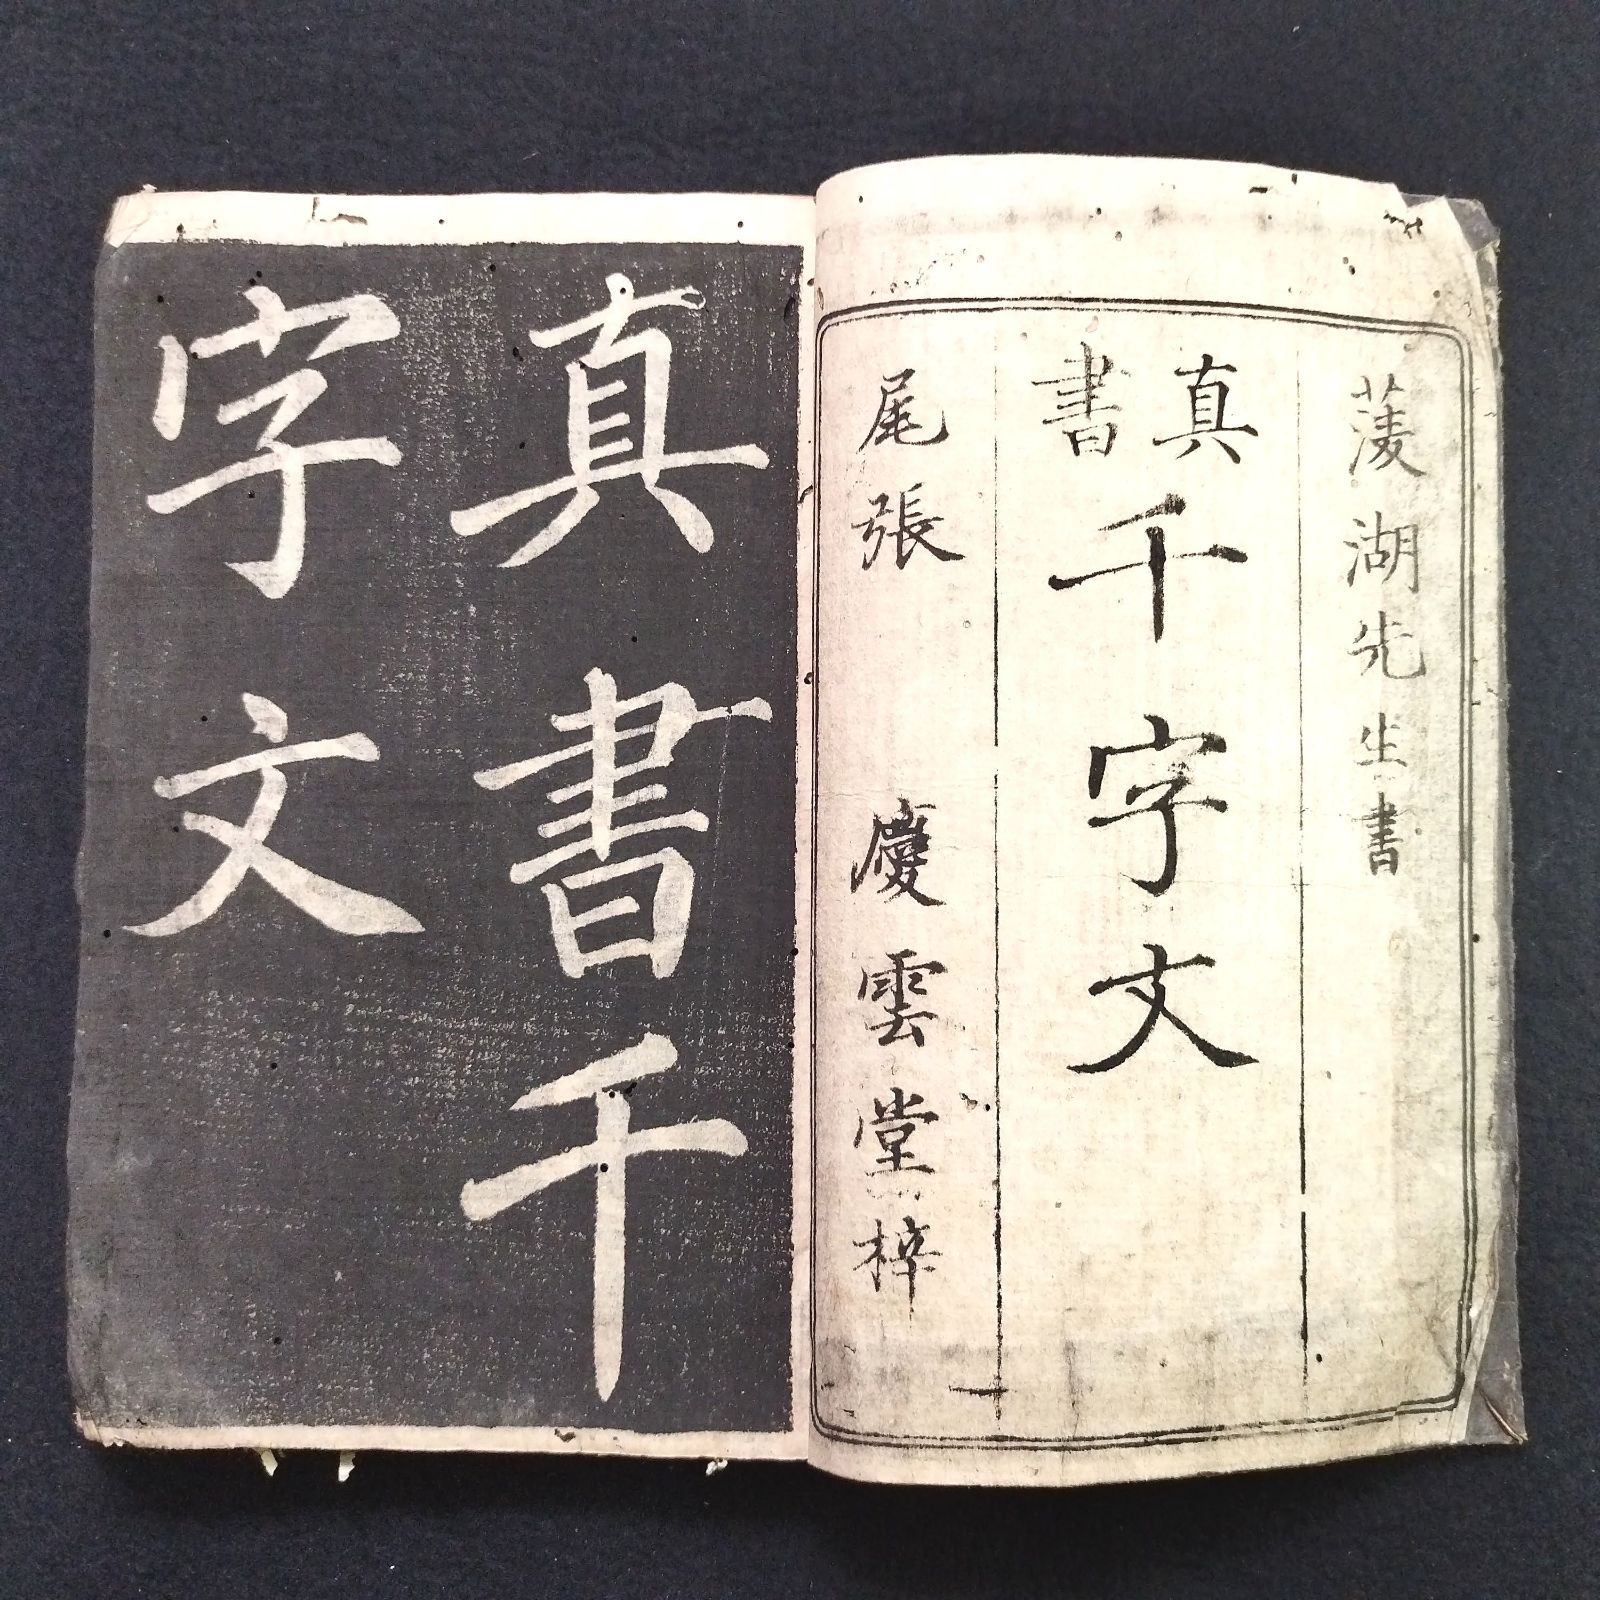 菱湖先生書
真書千字文
尾張 慶雲堂梓
真書千
字文